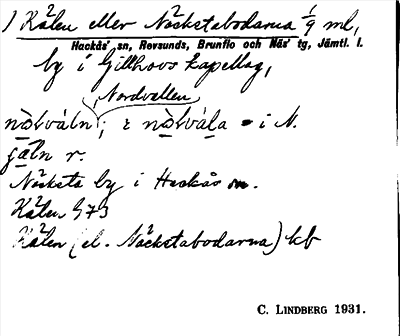 1 Kälen eller Näckstabodarna 1/9 ml,
Hackås' sn, Revsunds, Brunflo och Näs' tg, Jämtl. l.
by i Gillhovs kapellag,
Nordvallen
i N.
r.
Näcksta by i Hackås sn.
Kälen 573
Kälen (el. Näckstabodarna) kb
C. LINDBERG 1931.